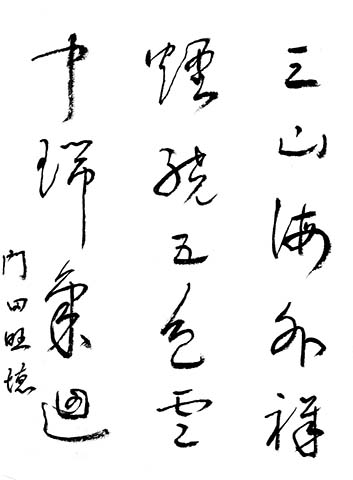 三山海外祥
煙繞五色雲
中瑞氣迴
門田旺穂